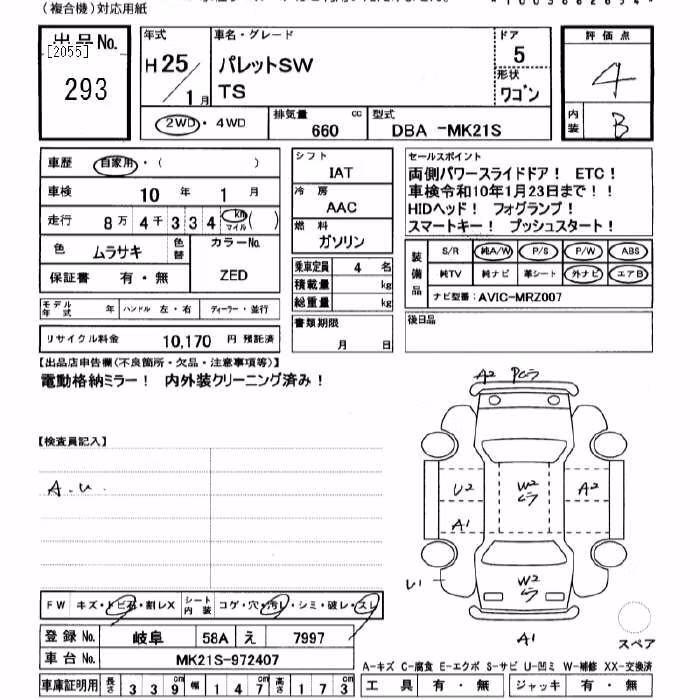 (複合機)対応用紙
出品No.
[2055]
293
年式
H25/1月
車名・グレード
パレットSW
TS
ドア
5
形状
ワゴン
評価点
4
内装
B
2WD・4WD
排気量 cc
660
型式
DBA -MK21S
車歴 自家用・( )
車検 10年 1月
走行 8万4千334 km マイル ( )
色 ムラサキ 色替
カラーNo.
ZED
保証書 有・無
モデル年式 年 ハンドル 左・右 ディーラー・並行
リサイクル料金 10,170 円 預託済
シフト
IAT
冷房
AAC
燃料
ガソリン
乗車定員 4 名
積載量 kg
総重量 kg
書類期限
月 日
セールスポイント
両側パワースライドドア! ETC!
車検令和10年1月23日まで!!
HIDヘッド! フォグランプ!
スマートキー! プッシュスタート!
装備品
S/R 純A/W P/S P/W ABS
純TV 純ナビ 革シート 外ナビ エアB
ナビ型番:AVIC-MRZ007
後日品
【出品店申告欄(不良箇所・欠品・注意事項等)】
電動格納ミラー! 内外装クリーニング済み!
【検査員記入】
A.U
A2 Pヒラ
U2
W2
ヒラ
A2
A1
U1
W2
ヒラ
A1
スペア
FW キズ・トビ石・割レX シート内装 コゲ・穴・汚レ・シミ・破レ・スレ
登録No. 岐阜 58A え 7997
車台No. MK21S-972407
車庫証明用 長さ 339cm 幅 147cm 高さ 173cm
A-キズ C-腐食 E-エクボ S-サビ U-凹ミ W-補修 XX-交換済
工具 有・無 ジャッキ 有・無